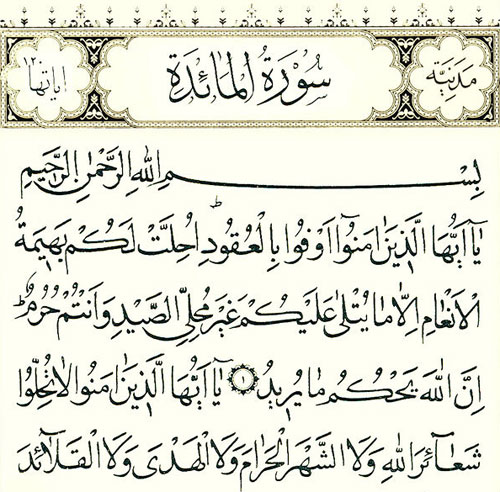 مَدَنِيَّة سُورَةُ الْمَائِدَةِ اٰيَاتُهَا ١٢٠
بِسْمِ اللّٰهِ الرَّحْمٰنِ الرَّحِيمِ
يَٓا اَيُّهَا الَّذِينَ اٰمَنُٓوا اَوْفُوا بِالْعُقُودِۜ اُحِلَّتْ لَكُمْ بَهِيمَةُ
الْاَنْعَامِ اِلَّا مَا يُتْلٰى عَلَيْكُمْ غَيْرَ مُحِلِّي الصَّيْدِ وَاَنْتُمْ حُرُمٌۜ
اِنَّ اللّٰهَ يَحْكُمُ مَا يُرِيدُ ١ يَٓا اَيُّهَا الَّذِينَ اٰمَنُوا لَا تُحِلُّوا
شَعَٓائِرَ اللّٰهِ وَلَا الشَّهْرَ الْحَرَامَ وَلَا الْهَدْيَ وَلَا الْقَلَٓائِدَ